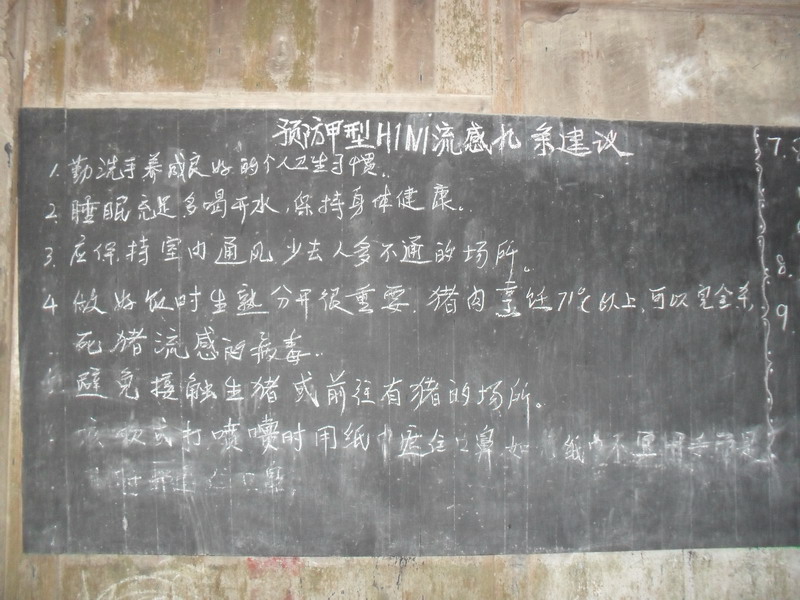 预防甲型H1N1流感九条建议
1. 勤洗手养成良好的个人卫生习惯。
2. 睡眠充足多喝开水,保持身体健康。
3. 应保持室内通风,少去人多不通的场所。
4 做好饭时生熟分开很重要.猪肉烹饪71℃以上,可以完全杀
死猪流感的病毒..
避免接触生猪或前往有猪的场所。
咳嗽或打喷嚏时用纸巾遮住口鼻,如 纸巾不
7.
8.
9.